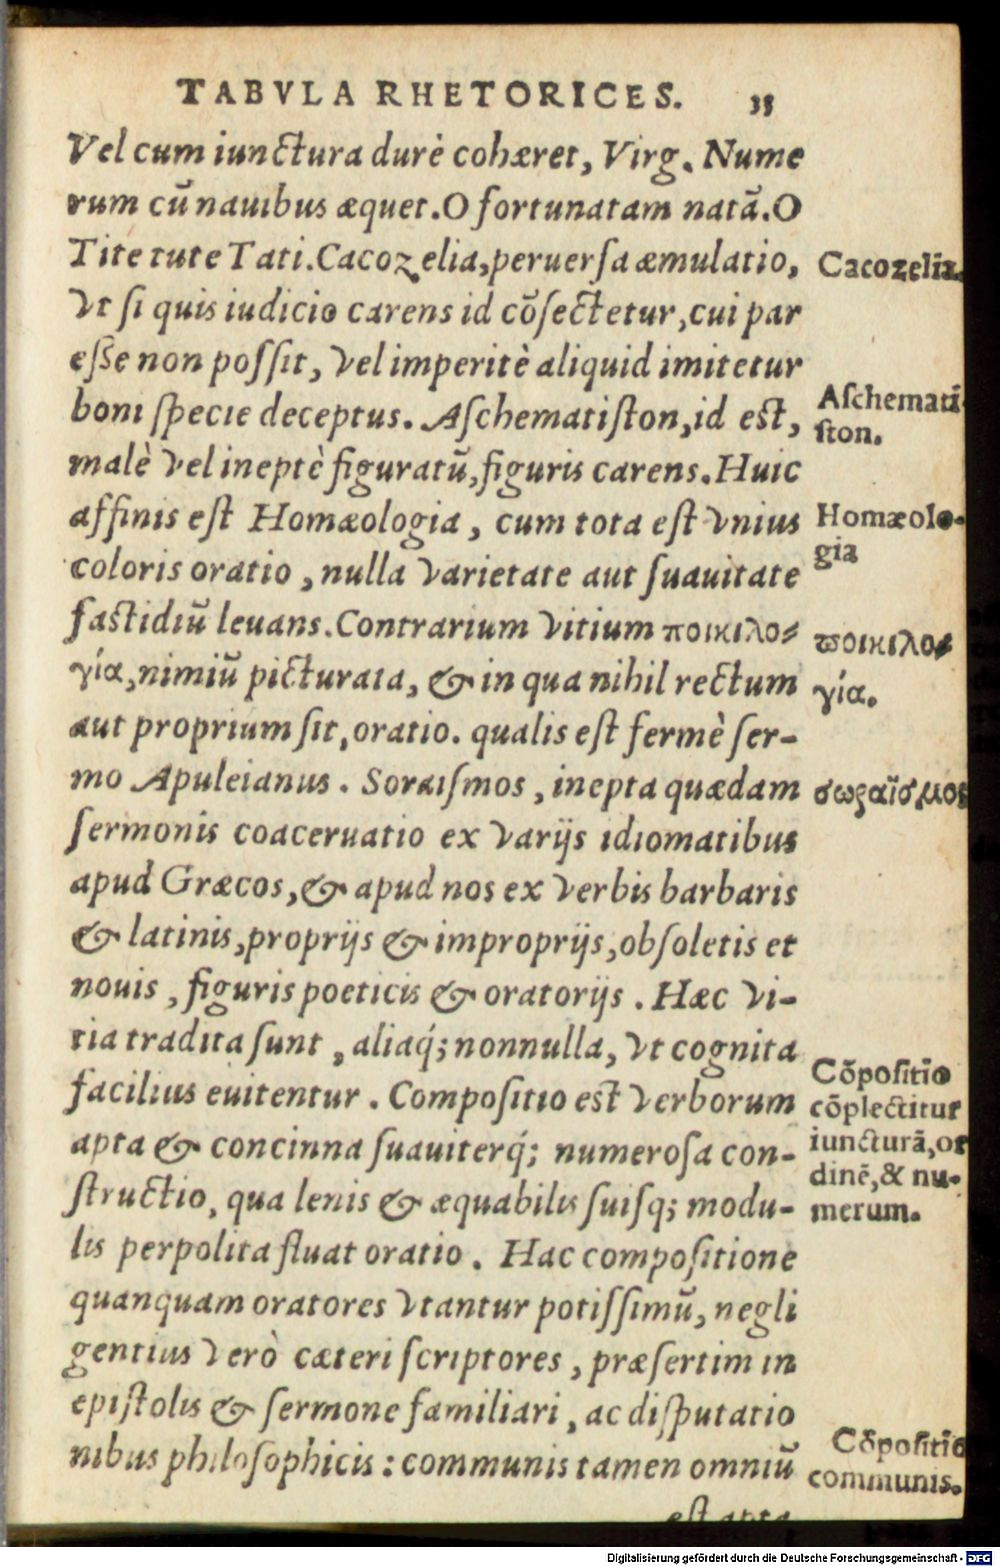 TABVLA RHETORICES. 35
Vel cum iunctura durè cohæret, Virg. Nume
rum cũ nauibus æquet. O fortunatam natã. O
Tite tute Tati. Cacozelia, peruersa æmulatio,
Cacozelia.
Vt si quis iudicio carens id cõsectetur, cui par
esse non possit, vel imperitè aliquid imitetur
boni specie deceptus. Aschematiston, id est,
Aschemati-
ston.
malè vel ineptè figuratũ, figuris carens. Huic
affinis est Homæologia, cum tota est vnius
Homæolo-
gia
coloris oratio, nulla varietate aut suauitate
fastidiũ leuans. Contrarium vitium ποικιλο-
ποικιλο-
γία, nimiũ picturata, & in qua nihil rectum
γία.
aut proprium sit, oratio. qualis est fermè ser-
mo Apuleianus. Soraismos, inepta quædam
σωραϊσμος
sermonis coaceruatio ex varijs idiomatibus
apud Græcos, & apud nos ex verbis barbaris
& latinis, proprijs & improprijs, obsoletis et
nouis, figuris poeticis & oratorijs. Hæc vi-
tia tradita sunt, aliaq́; nonnulla, vt cognita
facilius euitentur. Compositio est verborum
Cõpositio
cõplectitur
iuncturã, or
dinẽ, & nu-
merum.
apta & concinna suauiterq́; numerosa con-
structio, qua lenis & æquabilis suisq; modu-
lis perpolita fluat oratio. Hac compositione
quanquam oratores vtantur potissimũ, negli
gentius verò cæteri scriptores, præsertim in
epistolis & sermone familiari, ac disputatio
nibus philosophicis: communis tamen omniũ
Cõpositio
communis.
est apta
Digitalisierung gefördert durch die Deutsche Forschungsgemeinschaft - DFG